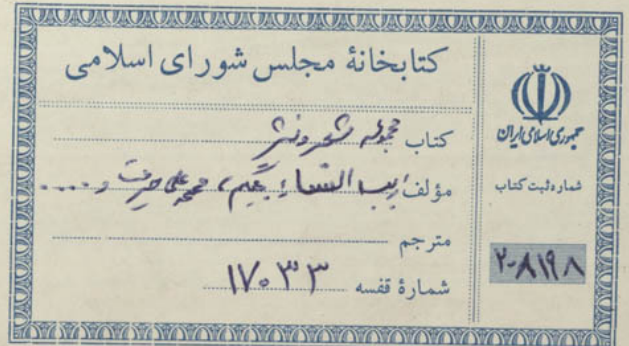 کتابخانهٔ مجلس شورای اسلامی
کتاب مجموعه شعر و نثر
مؤلف النساء بیگم، محمد علی و ....
مترجم
شمارهٔ قفسه ۱۷۰۳۳
جمهوری اسلامی ایران
شماره ثبت کتاب
۲۰۸۱۹۸